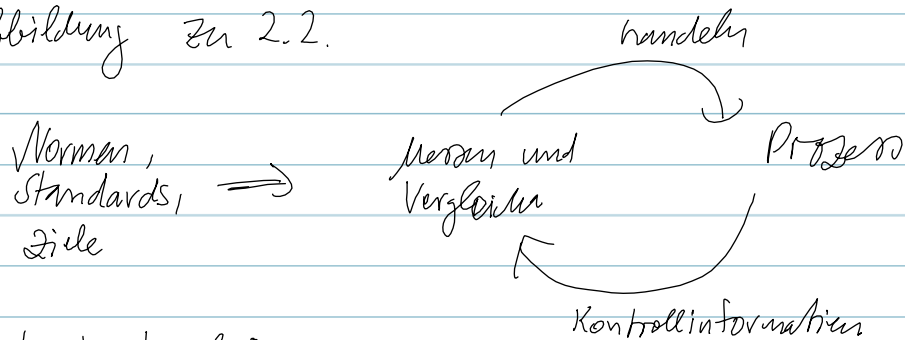 bbildung zu 2.2.
handeln
Normen,
Standards,
Ziele
Messen und
Vergleichen
Prozess
Kontrollinformation